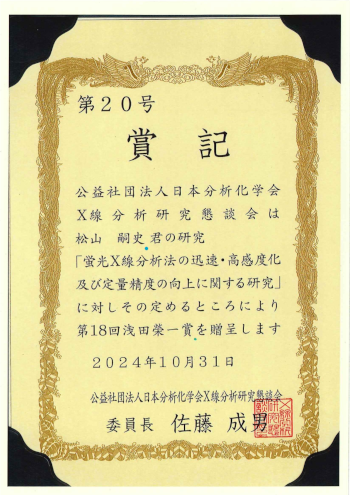 第20号
賞記
公益社団法人日本分析化学会
X線分析研究懇談会は
松山　嗣史君の研究
「蛍光X線分析法の迅速・高感度化
及び定量精度の向上に関する研究」
に対しその定めるところにより
第18回浅田榮一賞を贈呈します
2024年10月31日
公益社団法人日本分析化学会X線分析研究懇談会
委員長　佐藤　成男